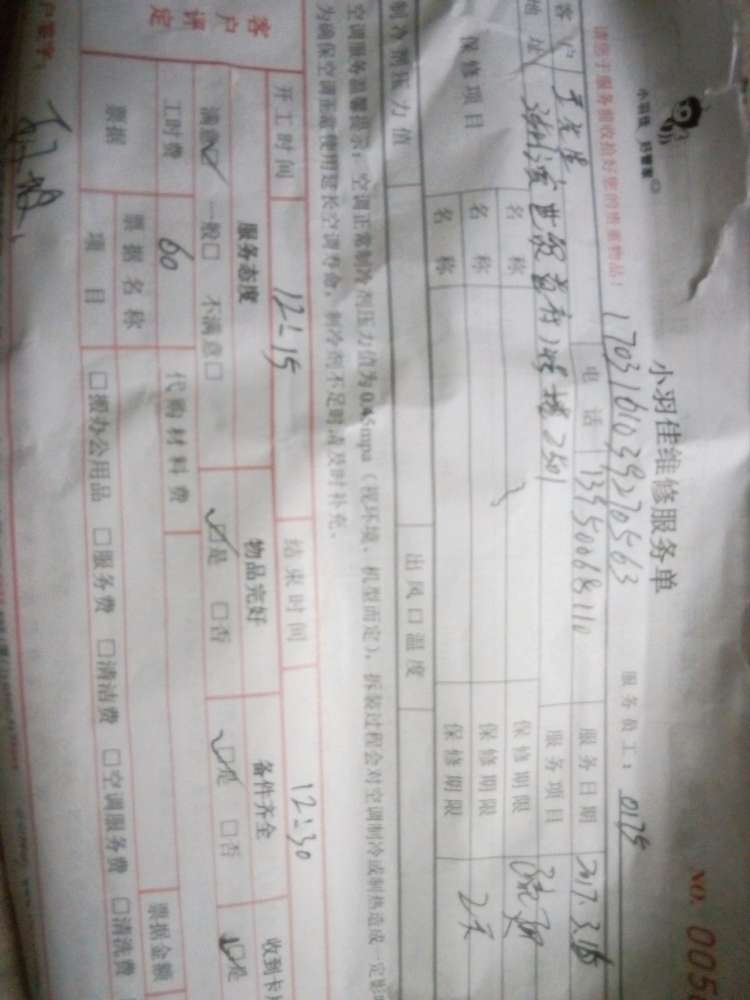 小羽佳 好管家
小羽佳维修服务单
NO. 005
请您于服务前收拾好您的贵重物品！
1703161039270563
服务员工： 0135
客户
电话
服务日期 2017.3.16
地址
2501
服务项目
保修项目
名称
保修期限
名称
保修期限
名称
保修期限 2天
制冷剂压力值
出风口温度
空调服务温馨提示：空调正常制冷剂压力值为0.45mpa（视环境、机型而定），拆装过程会对空调制冷或制热造成一定影
为确保空调正常使用延长空调寿命，制冷剂不足时请及时补充。
开工时间 12:15
结束时间 12:30
客户评定
服务态度
物品完好
备件齐全
收到卡
满意☑ 一般□ 不满意□
☑是 □否
☑是 □否
☑是
工时费 60
代购材料费
票据
票据名称
票据金额
项目
□搬办公用品 □服务费 □清洁费 □空调服务费 □清洗费
户签字